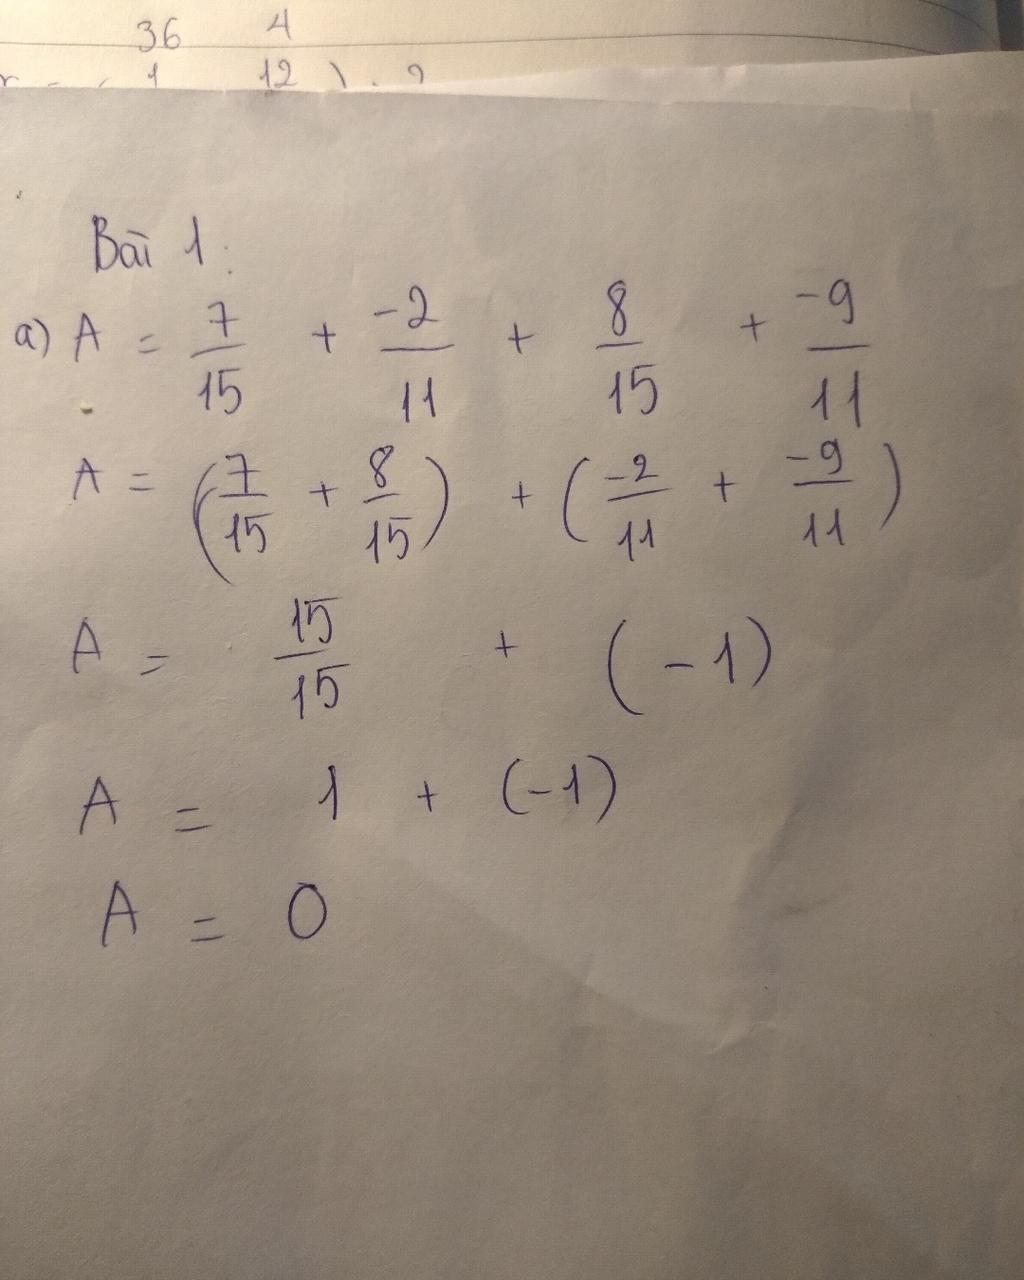 36 4
1 12 ) . 2
Bài 1:
a) A = 7/15 + -2/11 + 8/15 + -9/11
A = (7/15 + 8/15) + (-2/11 + -9/11)
A = 15/15 + (-1)
A = 1 + (-1)
A = 0